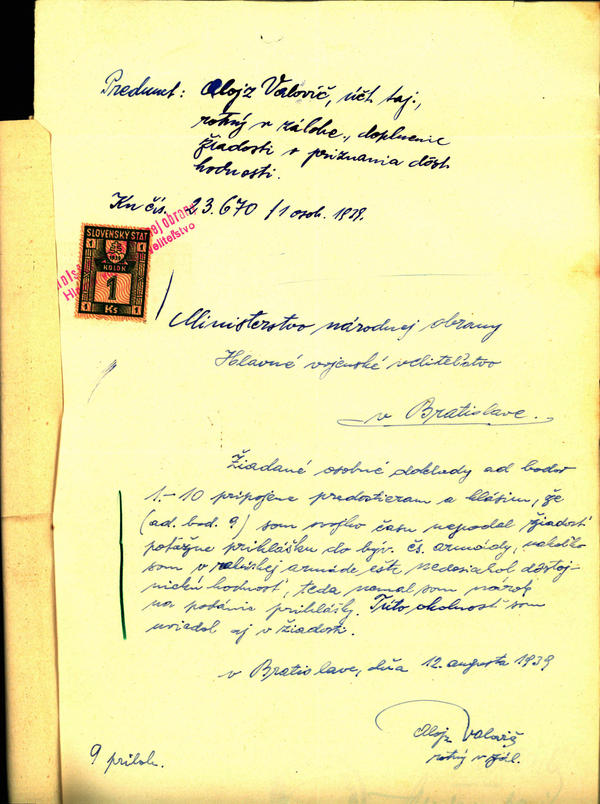 Predmet: Alojz Valovič, účt. taj.,
rotný v zálohe, doplnenie
žiadosti o priznania dôst.
hodnosti.
Kn čís. 23.670 / 1 osob. 1939.
SLOVENSKÝ ŠTÁT
KOLOK
1
Ks
Ministerstvo národnej obrany
Hlavné vojenské veliteľstvo
v Bratislave.
Žiadané osobné doklady ad bodov
1.-10 pripojene predostieram a hlásim, že
(ad. bod. 9) som svojho času nepodal žiadosti
poťažne prihlášku do býv. čs. armády, nakoľko
som v rakúskej armáde ešte nedosiahol dôstoj-
nickú hodnosť, teda nemal som nárok
na podanie prihlášky. Túto okolnosť som
uviedol aj v žiadosti.
v Bratislave, dňa 12. augusta 1939
Alojz Valovič
rotný v zál.
9 príloh.